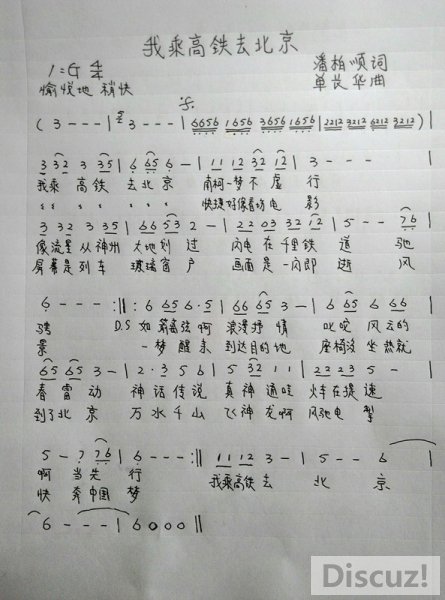 我乘高铁去北京
1=G
潘柏顺词
愉悦地 稍快
单长华曲
( 3 - - - | 3 - - - | 6656 1656 3656 1656 | 2212 3212 6212 3212 | )
3 32 3 35 | 6 65 6 - | 11 12 32 12 | 3 - - - |
我乘 高铁 去北京 南柯一梦不虚 行
快捷好像看动电 影
3 32 3 35 | 66 53 2 - | 22 03 32 12 | 5 - - 76 |
像流星从神州 大地划 过 闪电在千里铁 道 驰
屏幕是列车 玻璃窗户 画面是一闪即 逝 风
6 - - - :||: 6 65 6·5 | 66 65 3 - | 6 65 6 66 |
骋 D.S 如箭离弦啊 浪漫抒情 叱咤 风云的
景 一梦醒来 到达目的地 座椅没坐热就
65 65 3 - | 2·3 5 6 | 5 32 1 1 | 22 23 5 - |
春雷动 神话传说 真神通哇 火车在提速
到了北京 万水千山 飞神龙啊 风驰电掣
5 - 7 76 | 6 - - - :|| 11 12 3 - | 5 - - 6 |
啊 当先 行 我乘高铁去 北 京
快 奔中国 梦
6 - - - | 6 0 0 0 ||
Discuz!